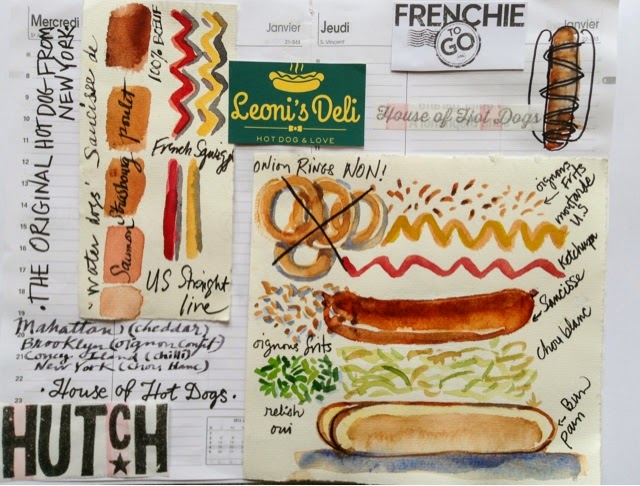 Mercredi
Janvier
Jeudi
S. Vincent
Janvier
FRENCHIE
TO
GO
Leoni's Deli
HOT DOG & LOVE
House of Hot Dogs
.THE ORIGINAL HOT DOG FROM
NEW YORK
Water dogs' Saucisse de
poulet
Strasbourg
Saumon
100% BŒUF
French Squiggle
US Straight
line
ONION RINGS NON!
oignons
frits
moutarde
US
Ketchup
Saucisse
chou blanc
oignons frits
relish
oui
Bun
Pain
Manhattan) (cheddar)
Brooklyn (oignon confit)
Coney Island (chilli)
New York (Chou blanc)
. House of Hot Dogs.
HUTCH